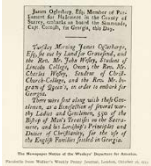 James Oglethorp, Esq; Member of Par-
liament for Haslemere in the County of
Surrey, embarks on board the Simmonds,
Capt. Cornish, for Georgia, this Day.
Tuesday Morning James Oglethorp,
Esq; set out by Land for Gravesend, and
the Rev. Mr. John Wesley, Student of
Lincoln College, Oxon; the Rev. Mr.
Charles Wesley, Student of Christ
Church College, and the Rev. Mr. In-
gram of Queen's, in order to embark for
Georgia.
There were sent along with these Gen-
tlemen, as a Benefaction of several wor-
thy Ladies and Gentlemen, 550 of the
Bishop of Man's Treatise on the Sacra-
ment, and his Lordship's Principles and
Duties of Christianity, for the use of
the English Families settled in Georgia.
The Newspaper Notice of the Wesleys' Departure for America.
Facsimile from Walker's Weekly Penny Journal, London, October 18, 1735